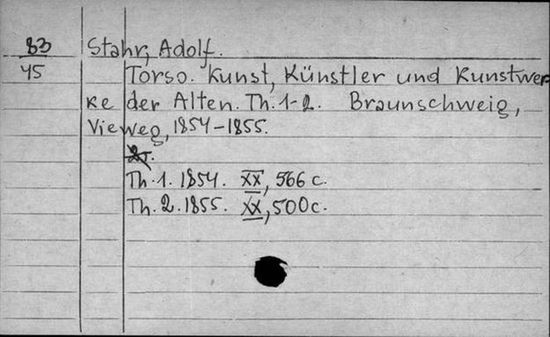 83 Stahr, Adolf.
45 Torso. Kunst, Künstler und Kunstwer
ke der Alten. Th. 1-2. Braunschweig,
Vieweg, 1854-1855.
2.
Th. 1. 1854. XX, 566 c.
Th. 2. 1855. XX, 500 c.